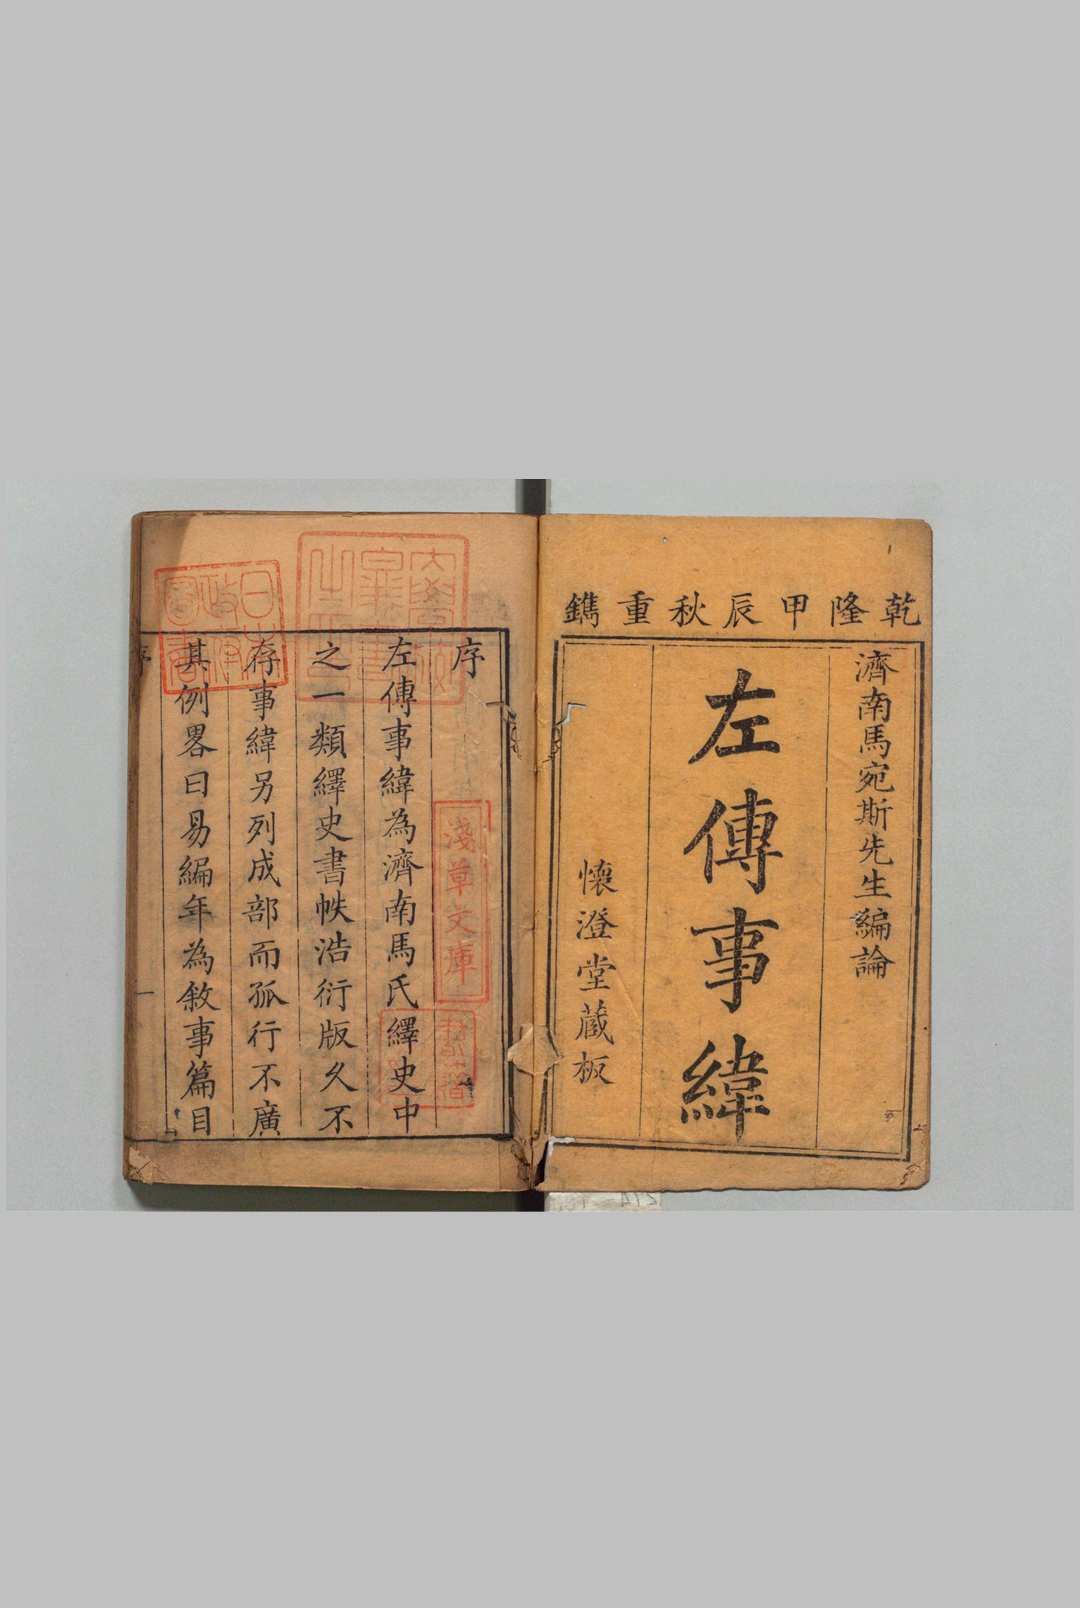 乾隆甲辰秋重鐫
濟南馬宛斯先生編論
左傳事緯
懷澄堂藏板
序
左傳事緯為濟南馬氏繹史中
之一類繹史書帙浩衍版久不
存事緯另列成部而孤行不廣
其例畧曰易編年為敘事篇目
序
一
淺草文庫
日本政府圖書